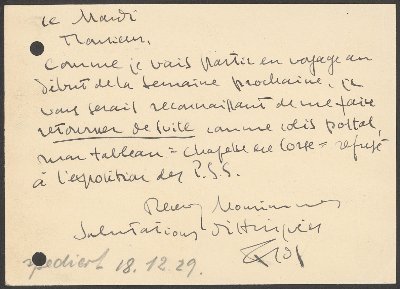 ce Mardi
Monsieur,
Comme je vais partir en voyage au
début de la semaine prochaine, je
vous serais reconnaissant de me faire
retourner de suite comme colis postal,
mon tableau = chapelle en Corse = refusé
à l'exposition des P.S.S.
Recevez Monsieur mes
Salutations distinguées
spediert 18.12.29.